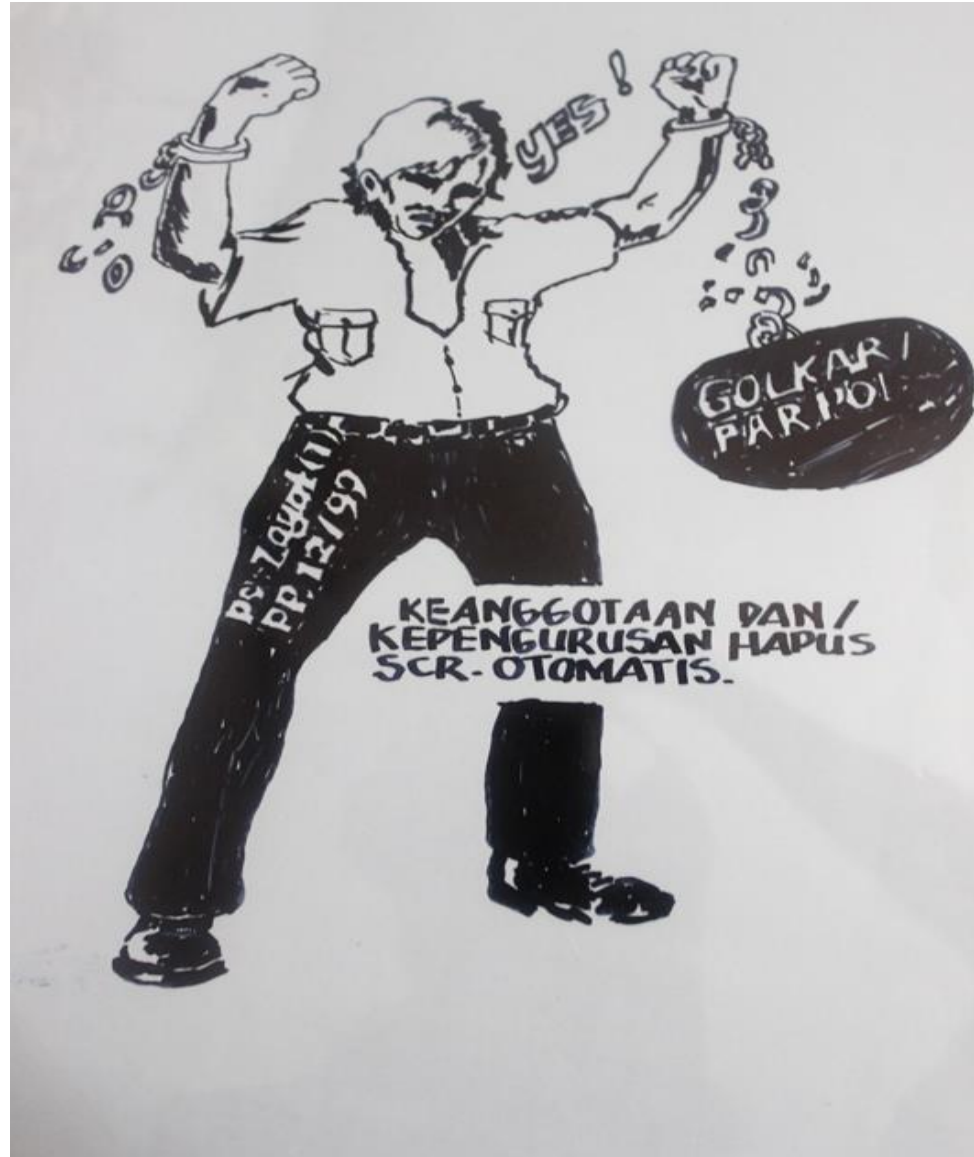 YES!
GOLKAR /
PARPOL
ps. 2 ayat (1)
PP. 12/99
KEANGGOTAAN DAN /
KEPENGURUSAN HAPUS
SCR. OTOMATIS.